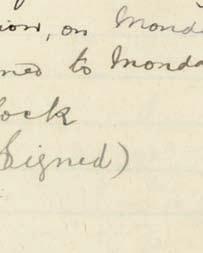 ion, on Monda
ned to Monda
lock
(Signed)